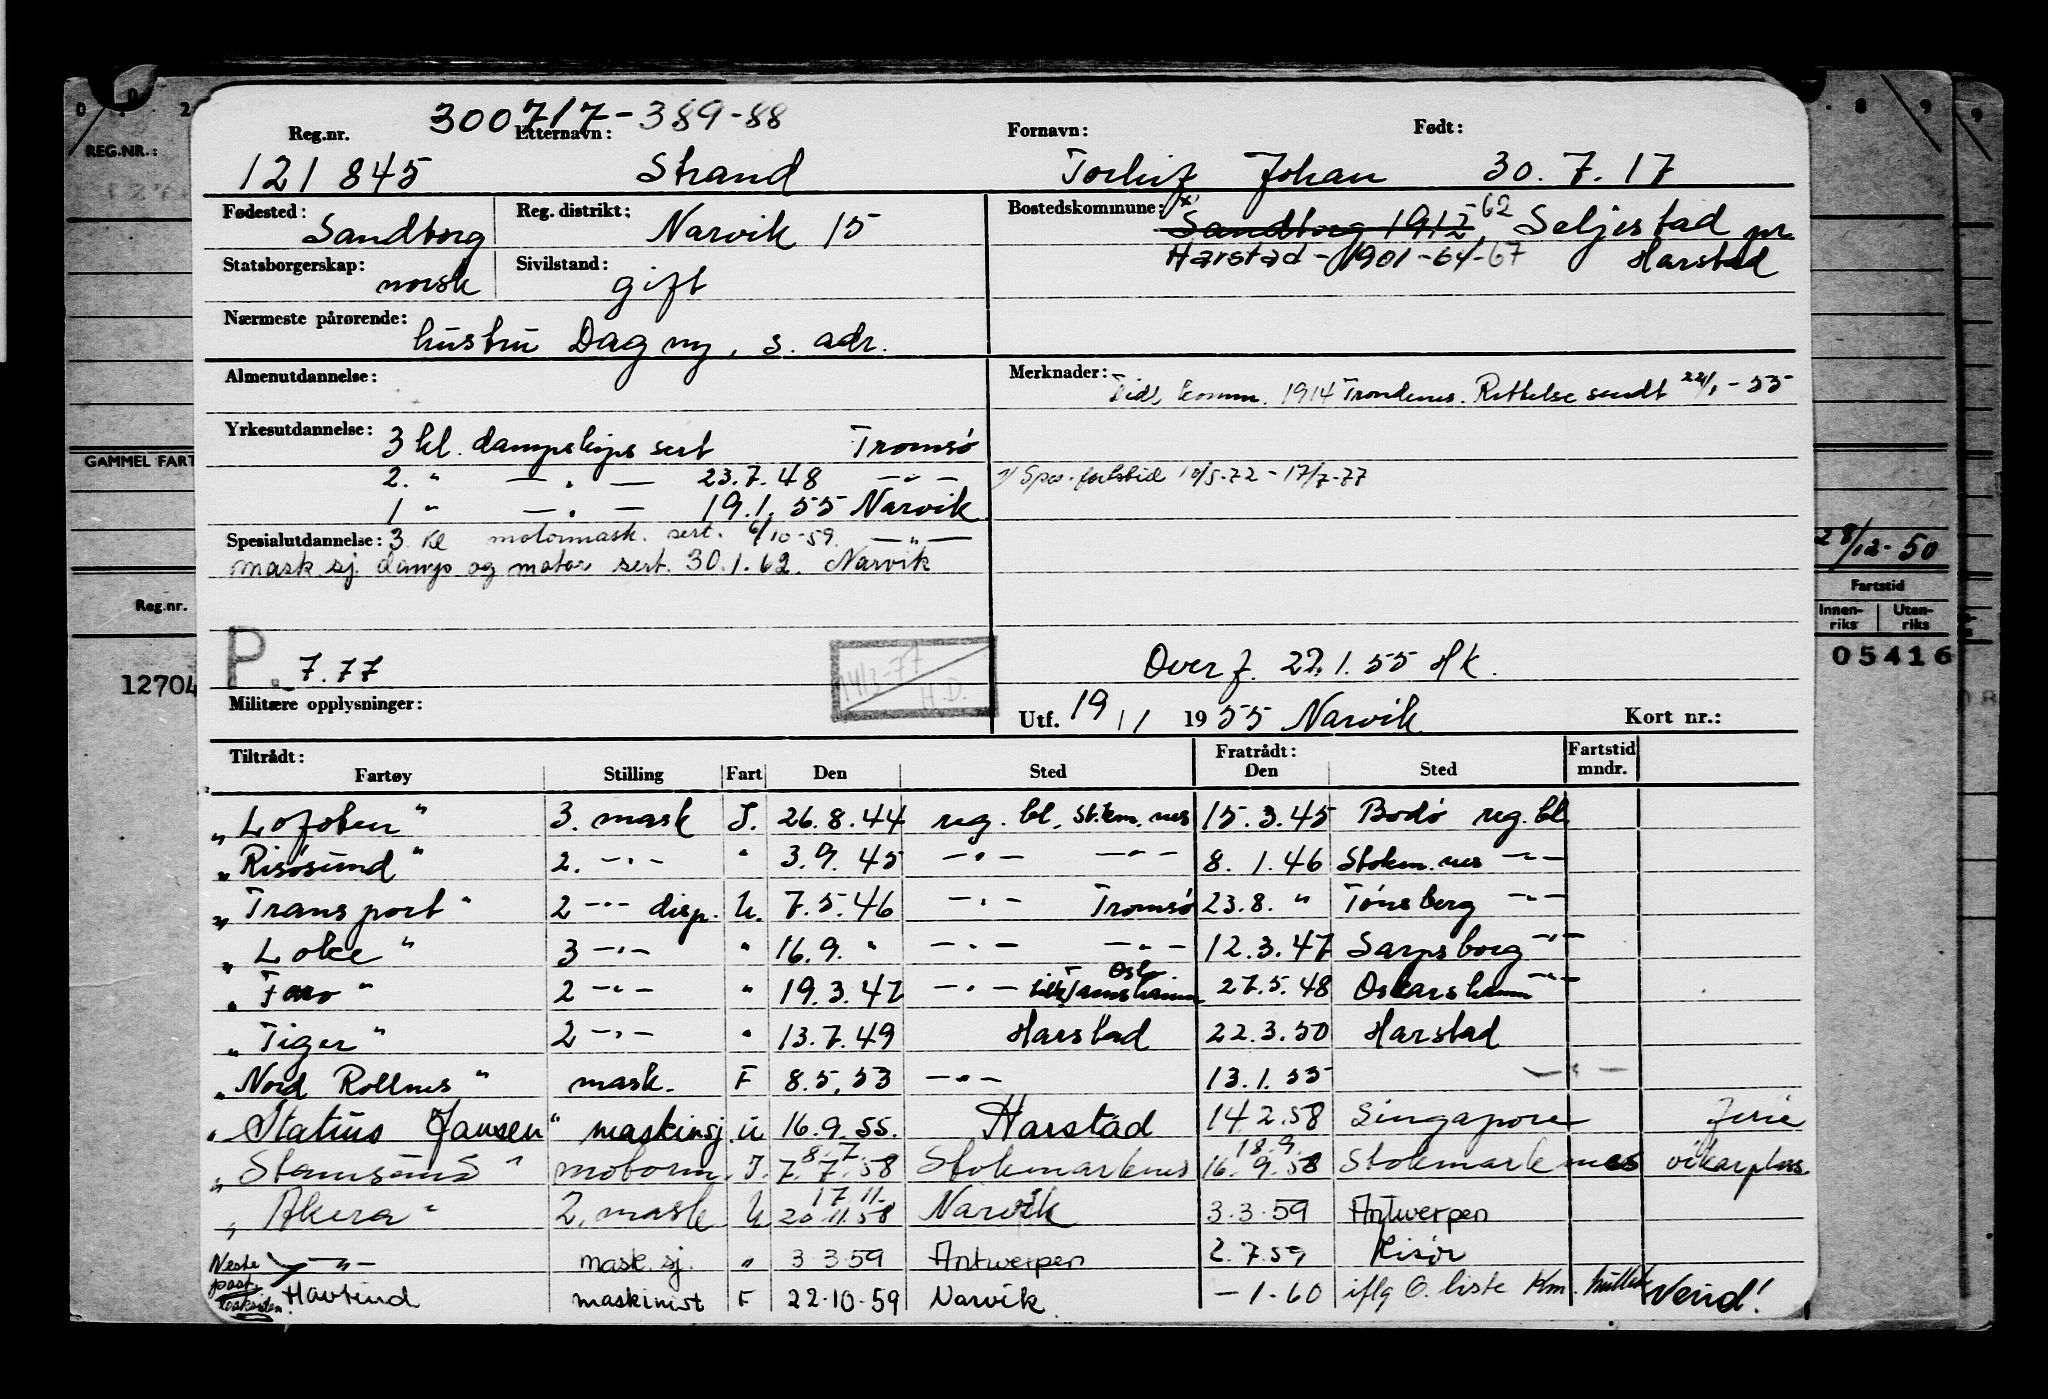 300717-389-88
Reg.nr. Etternavn: Fornavn: Født:
121845 Strand Torleif Johan 30.7.17
Fødested: Sandtorg Reg. distrikt: Narvik 15 Bostedskommune: Sandtorg 1912 -62 Seljestad pr
Harstad - 1901-64-67 Harstad
Statsborgerskap: norsk Sivilstand: gift
Nærmeste pårørende: hustru Dagny, s. adr.
Almenutdannelse:
Merknader: Tidl. komm. 1914 Trondenes. Rettelse sendt 22/1-55
Yrkesutdannelse: 3 kl. dampskips sert Tromsø
2. " — " — 23.7.48 — " —
1 " — " — 19.1.55 Narvik
Spes. fartstid 10/5-72 - 17/7-77
Spesialutdannelse: 3 kl motormask. sert. 6/10-59 — " —
mask.sj. damp og motor sert. 30.1.62. Narvik
P. 7.77
14/3-77
H.D.
Overf. 22.1.55 HK.
Militære opplysninger:
Utf. 19/1 1955 Narvik Kort nr.:
Tiltrådt: Fratrådt: Fartstid
Fartøy Stilling Fart Den Sted Den Sted mndr.
"Lofoten" 3. mask I. 26.8.44 reg. bl. Stokm.nes 15.3.45 Bodø reg.bl
"Risøsund" 2. — " — " 3.9.45 — " — — " — 8.1.46 Stokm.nes — " —
"Transport" 2 — " — disp. U. 7.5.46 — " — Tromsø 23.8. " Tønsberg — " —
"Loke" 3 — " — " 16.9. " — " — — " — 12.3.47 Sarpsborg — " —
"Faro" 2 — " — " 19.3.47 — " — Oslo 27.5.48 Oskarshamn — " —
"Tiger" 2 — " — " 13.7.49 Harstad 22.3.50 Harstad
"Nord Rollnes" mask. F 8.5.53 — " — 13.1.55 — " —
"Statius Jansen" maskinsj. U 16.9.55. Harstad 14.2.58 Singapore ferie
8.7. 18.9.
"Stamsund" motorm. I. 7.7.58 Stokmarknes 16.9.58 Stokmarknes vikarplass.
17.11.
"Akera" 2. mask U 20.11.58 Narvik 3.3.59 Antwerpen
— " — mask.sj. " 3.3.59 Antwerpen 2.7.59 Risør
Neste
post
Havtind maskinist F 22.10.59 Narvik -1-60 iflg O. liste Vend!
REG.NR.:
GAMMEL FART
Reg.nr.
12704
28/12-50
Fartstid
Innen-
riks
Uten-
riks
05416